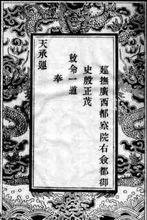 廵撫廣西都察院右僉都御
史殷正茂
敕令一道
奉
天承運